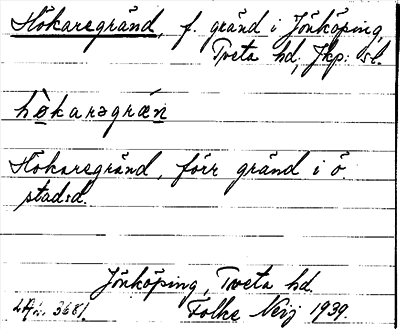 Hökaresgränd, f. gränd i Jönköping,
Tveta hd, Jkp: sl.
hökarəgræn
Hökaresgränd, förr gränd i ö.
stadsd.
Jönköping, Tveta hd.
Folke Neij 1939.